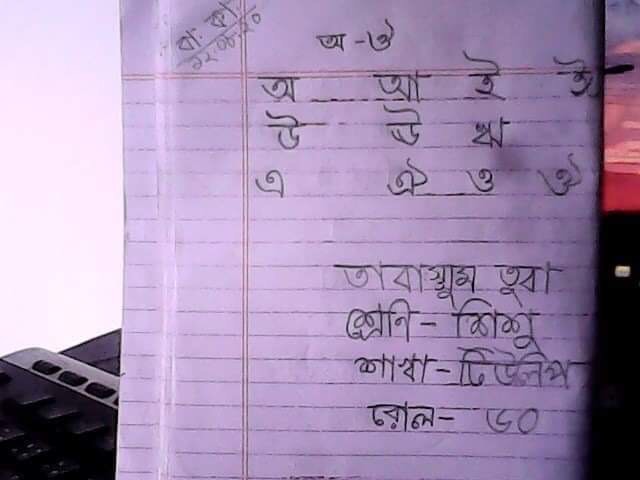 বা: কা:
১২.০৮.২০
অ-ঔ
অ আ ই ঈ
উ ঊ ঋ
এ ঐ ও ঔ
তাবাস্সুম তুবা
শ্রেণি- শিশু
শাখা- টিউলিপ
রোল- ৬০